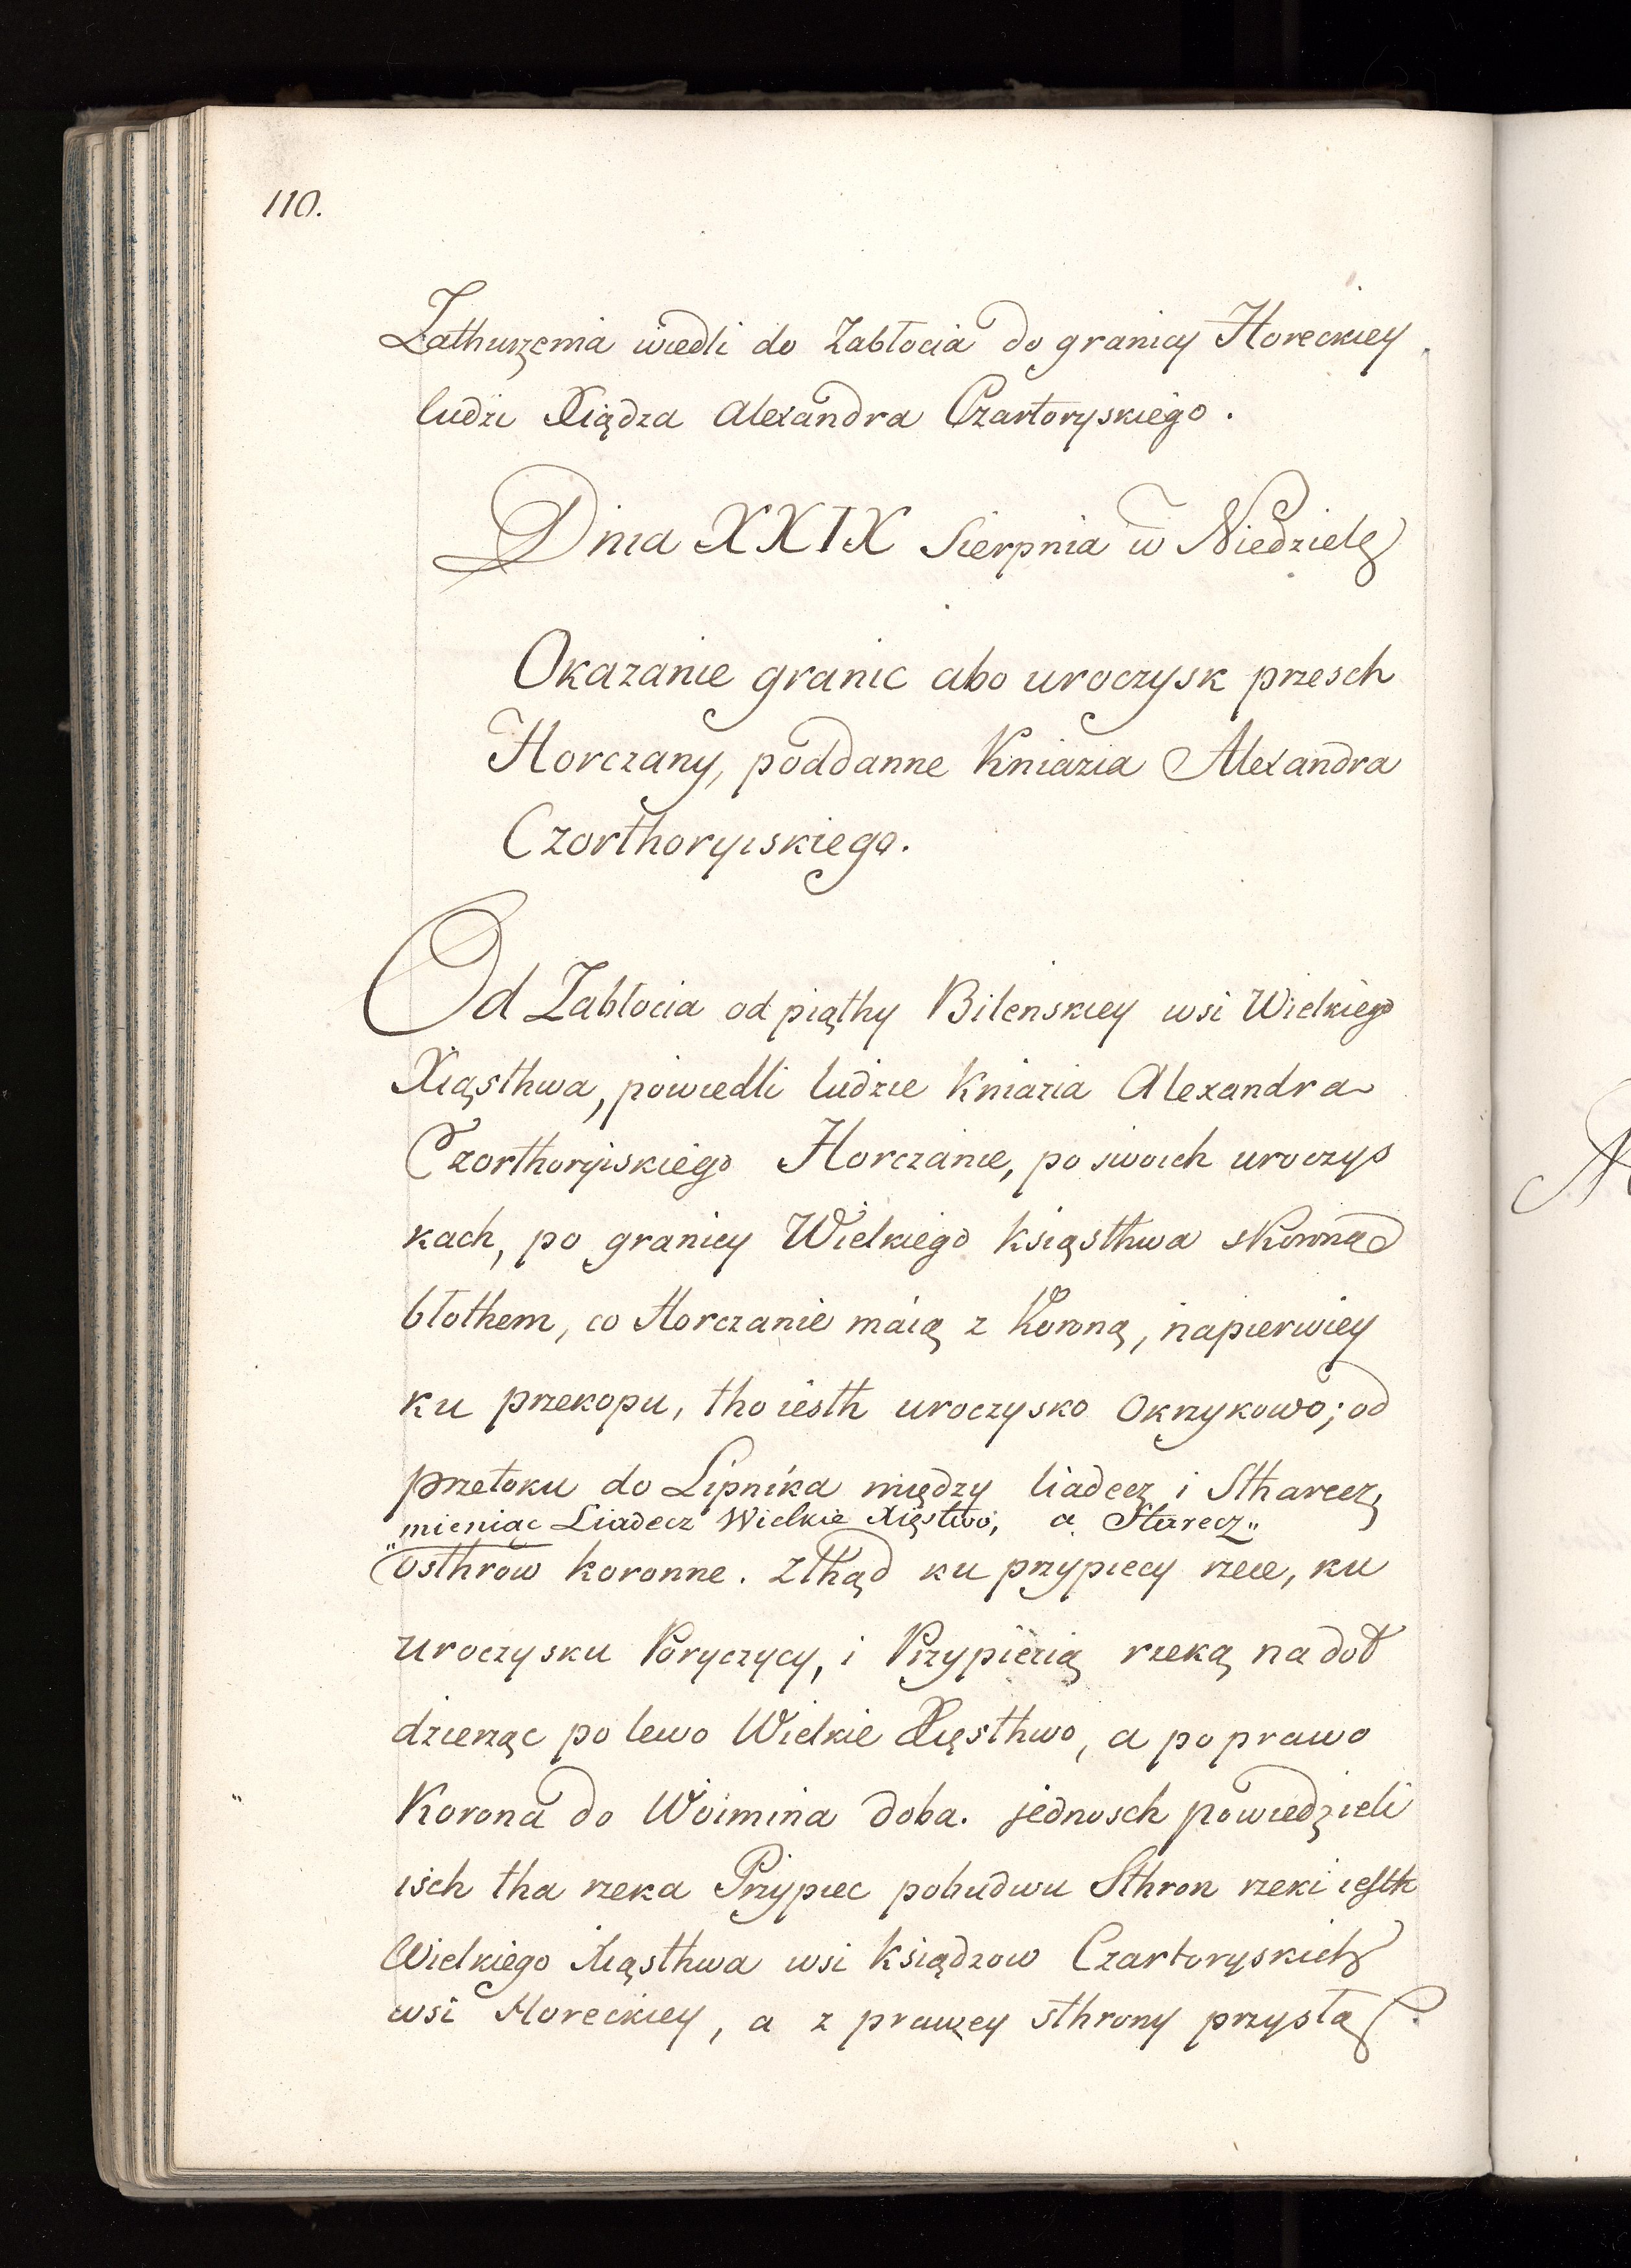 110.
Zathurzenia wiedli do Zabłocia do granicy Horeckiey
ludzi Xiądza Alexandra Czartoryskiego.
Dnia XXIX Sierpnia w Niedzielę
Okazanie granic abo uroczysk przesch
Horczany, poddanne Kniazia Alexandra
Czorthoryiskiego.
Od Zabłocia od piąthy Bilenskiey wsi Wielkiego
Xiąsthwa, powiedli ludzie Kniazia Alexandra
Czorthoryiskiego Horczanie, po swoich uroczys
kach, po granicy Wielkiego Księsthwa skoroną
błothem, co Horczanie maią z Koroną, napierwiey
ku przekopu, tho iesth uroczysko Okrzykowo; od
przetoku do Lipnika między liadecz i Stharecz,
mieniąc Liadecz Wielkie Xięstwo, a Starecz"
"osthrow koronne. Zthąd ku przypiecy rzece, ku
uroczysku Poryczycy, i Przypiecią rzeką na doł
dzierząc po lewo Wielkie Xięsthwo, a po prawo
Korona do Woimina doba. jednosch powiedzieli
isch tha rzeka Przypiec pobudwu Sthron rzeki iesth
Wielkiego Xiąsthwa wsi Ksiądzow Czartoryskich
wsi Horeckiey, a z prawey sthrony przysta